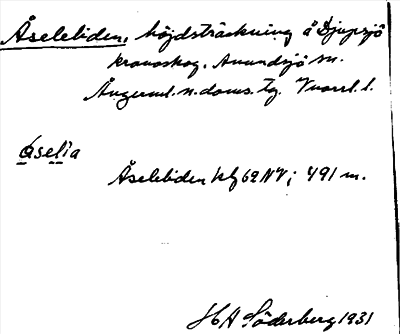 Åselebiden, höjdsträckning å Djupsjö
kronoskog, Anundsjö sn.
Ångerml. n. doms. tg. Vnorrl. l.
åselia
Åselebiden kbf 62 NV; 491 m.
H A Söderberg 1931